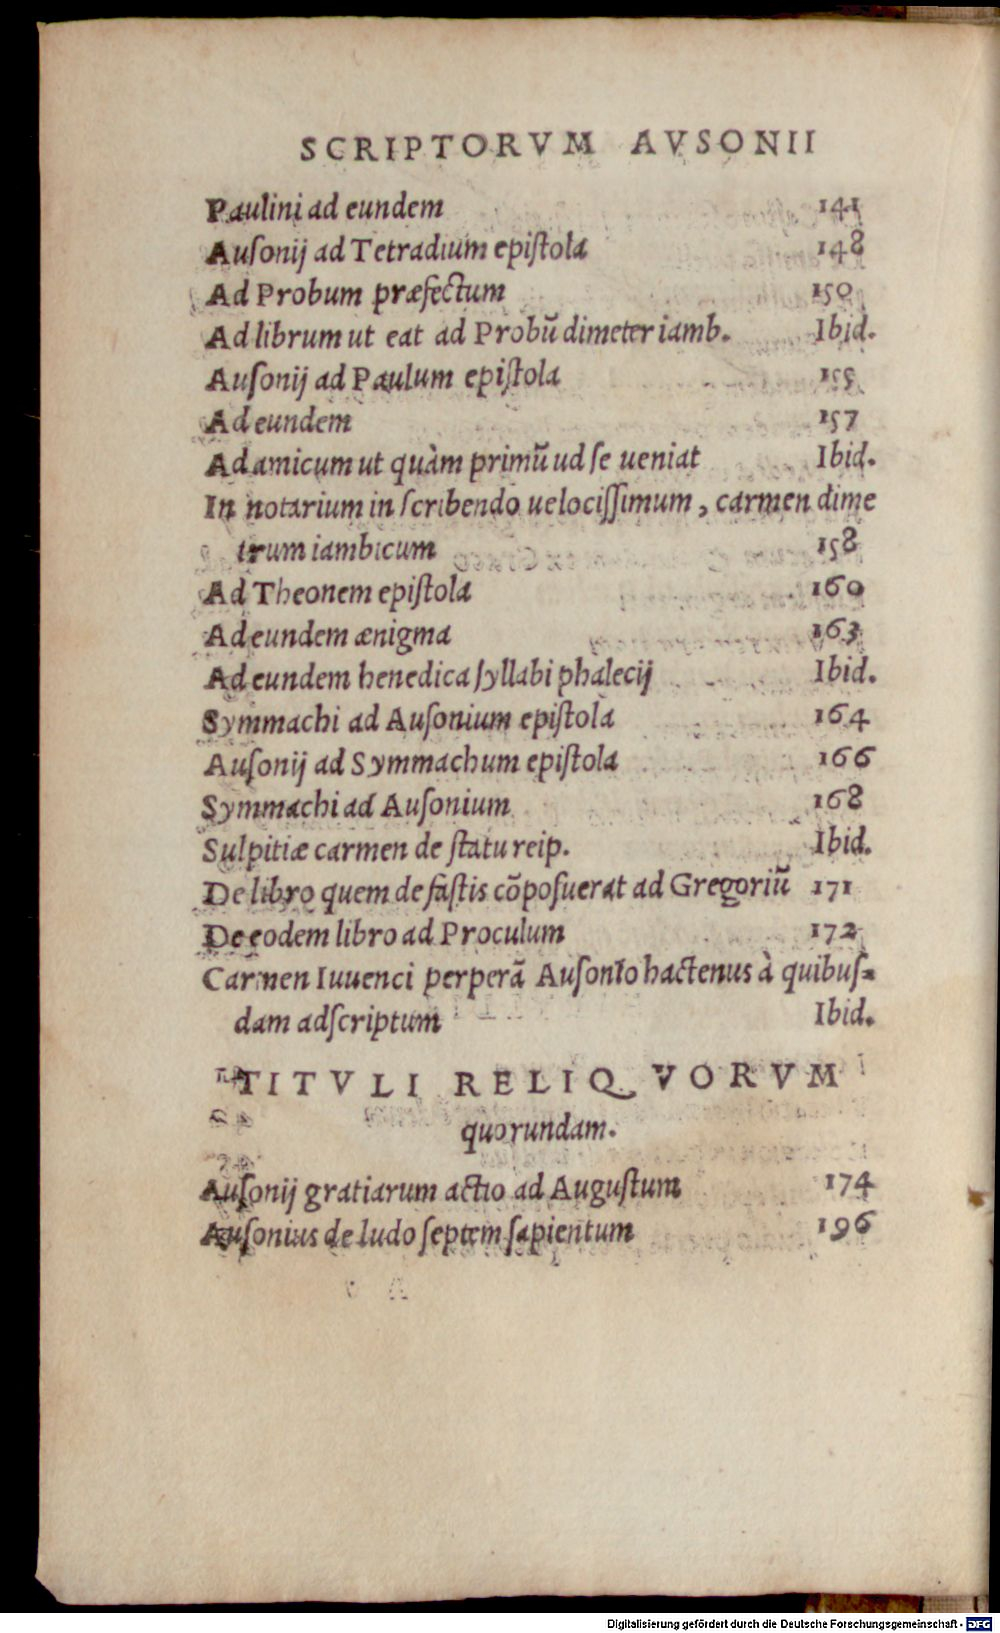 SCRIPTORVM AVSONII
Paulini ad eundem 141
Auſonij ad Tetradium epiſtola 148
Ad Probum præfectum 150
Ad librum ut eat ad Probũ dimeter iamb. Ibid.
Auſonij ad Paulum epiſtola 155
Ad eundem 157
Ad amicum ut quàm primũ ud ſe ueniat Ibid.
In notarium in ſcribendo uelociſſimum, carmen dime
trum iambicum 158
Ad Theonem epiſtola 160
Ad eundem ænigma 163
Ad eundem henedica ſyllabi phalecij Ibid.
Symmachi ad Auſonium epiſtola 164
Auſonij ad Symmachum epiſtola 166
Symmachi ad Auſonium 168
Sulpitiæ carmen de ſtatu reip. Ibid.
De libro quem de faſtis cõpoſuerat ad Gregoriũ 171
De eodem libro ad Proculum 172
Carmen Iuuenci perperã Auſonio hactenus à quibuſ-
dam adſcriptum Ibid.
TITVLI RELIQVORVM
quorundam.
Auſonij gratiarum actio ad Auguſtum 174
Auſonius de ludo ſeptem ſapientum 196
Digitalisierung gefördert durch die Deutsche Forschungsgemeinschaft - DFG